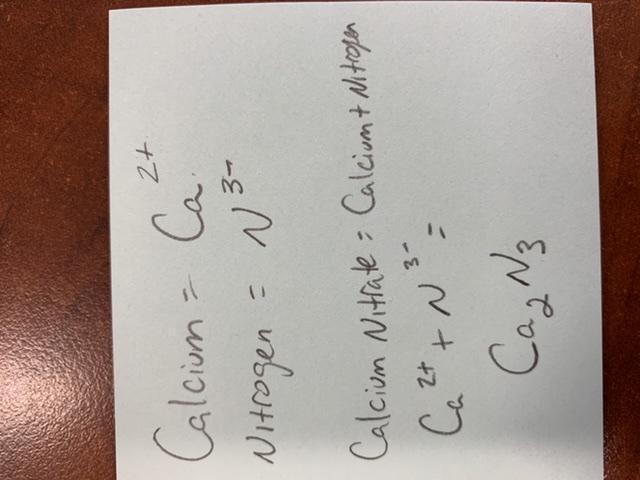 Calcium = Ca²⁺
Nitrogen = N³⁻
Calcium Nitrate = Calcium + Nitrogen
Ca²⁺ + N³⁻ =
Ca₂N₃